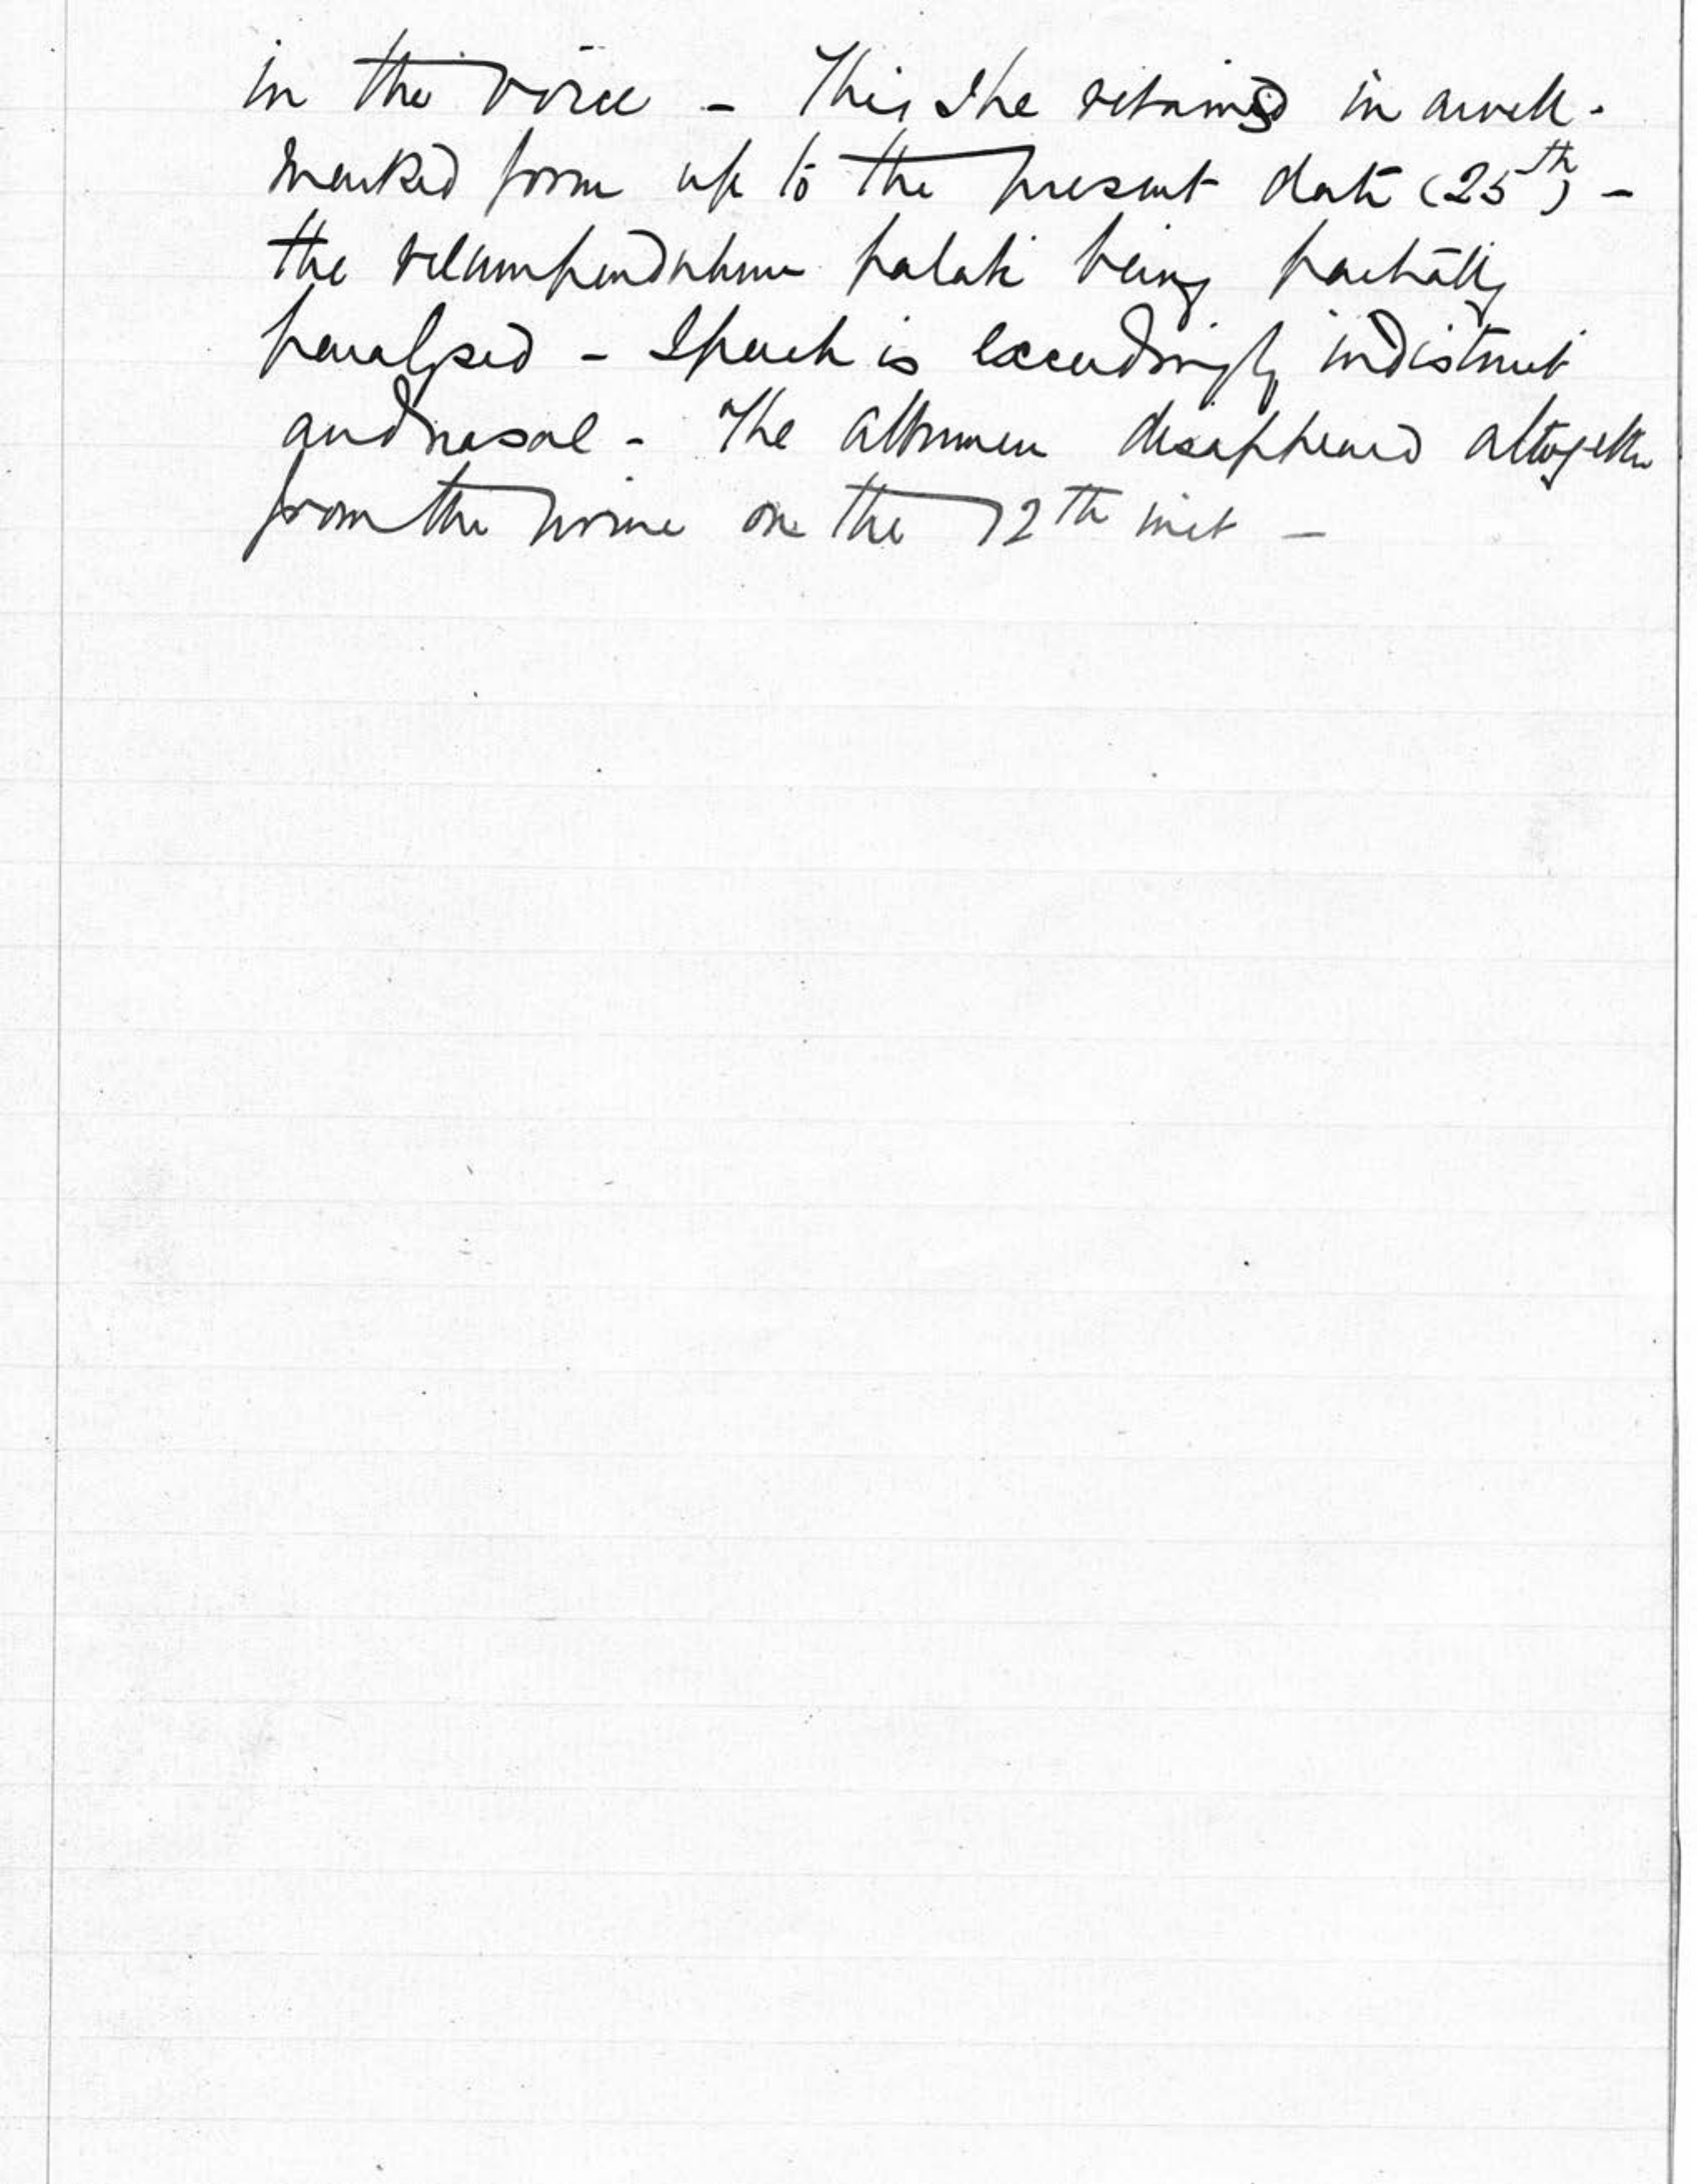 in the voice - This she retained in a well-
marked form up to the present date (25th) -
the velum pendulum palati being partially
paralysed - Speech is exceedingly indistinct
and nasal - The albumen disappeared altogether
from the urine on the 12th inst -